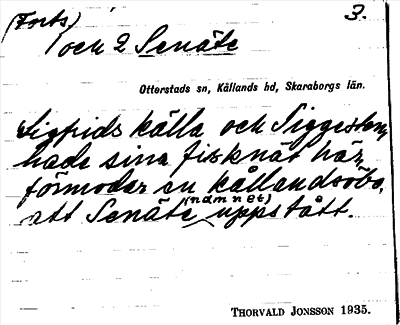 (Forts)
3.
och 2 Senäte
Otterstads sn, Kållands hd, Skaraborgs län.
Sigfrids källa och Siggesten,
hade sina fisknät här,
förmodar en kållandsöbo,
att Senäte (namnet) uppstått.
THORVALD JONSSON 1935.